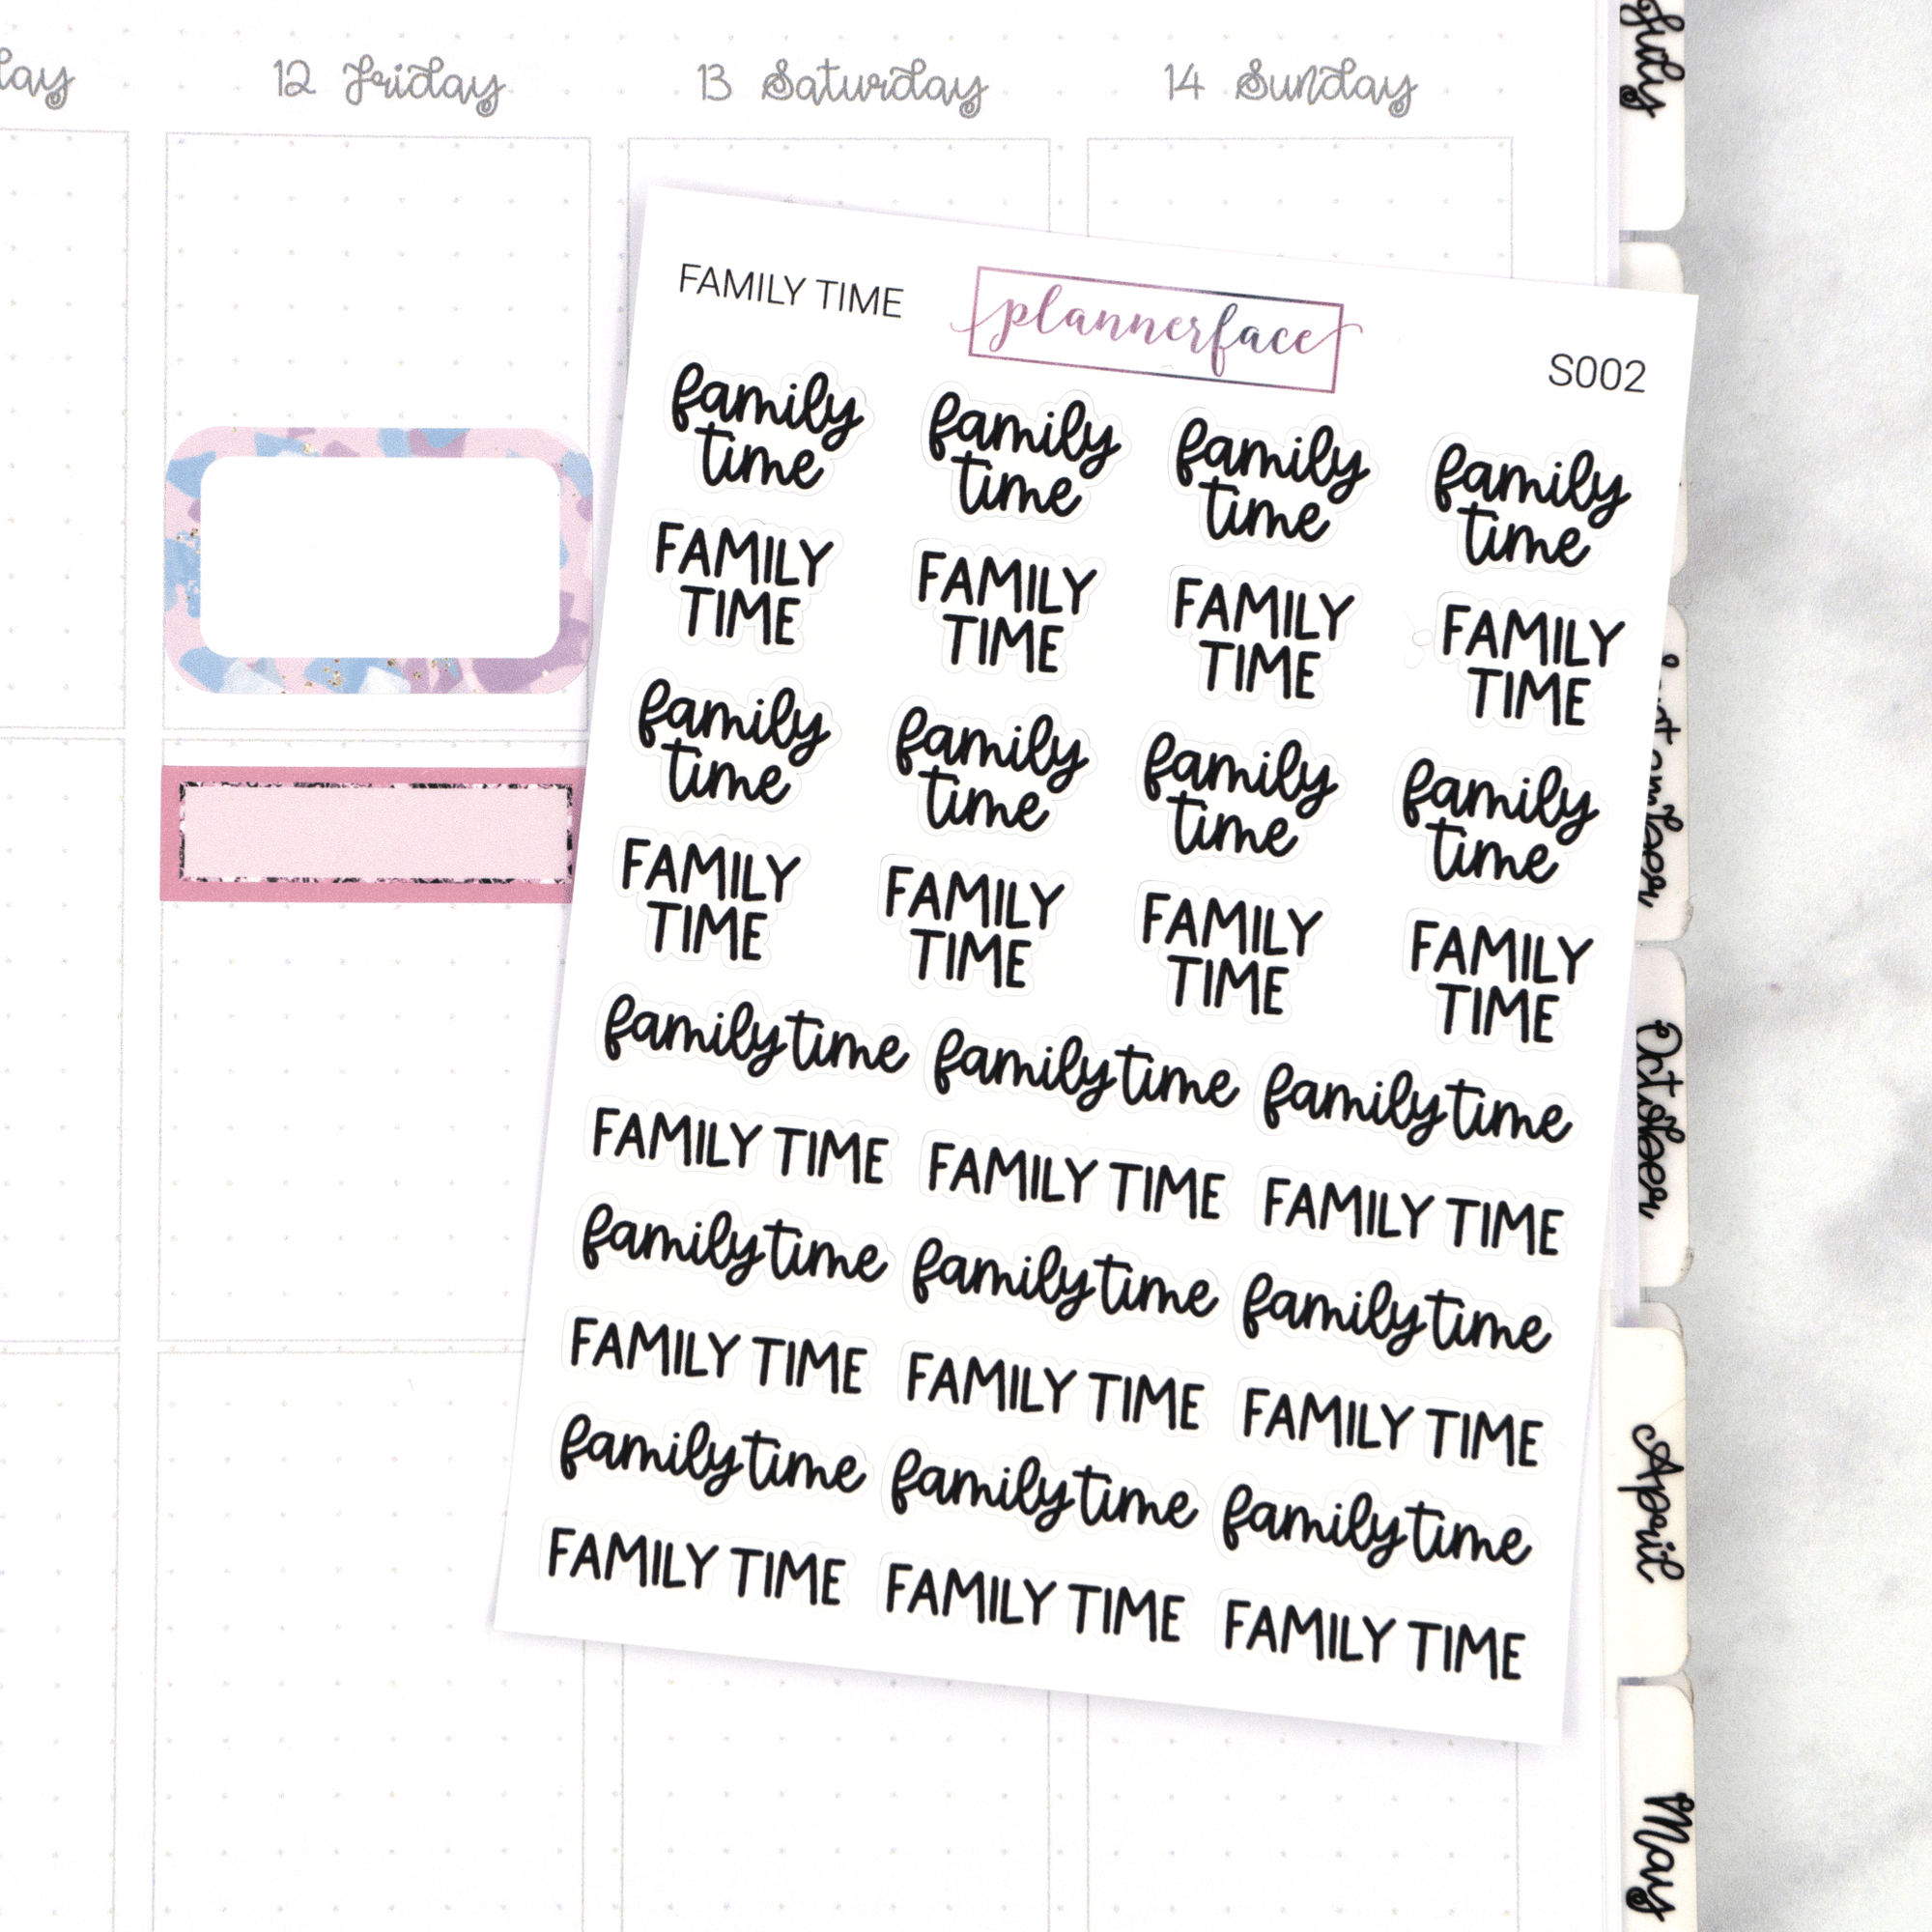 12 Friday 13 Saturday 14 Sunday
July
FAMILY TIME plannerface S002
family family family family
time time time time
FAMILY FAMILY FAMILY FAMILY
TIME TIME TIME TIME
family family family family
time time time time
FAMILY FAMILY FAMILY FAMILY
TIME TIME TIME TIME
family time family time family time
FAMILY TIME FAMILY TIME FAMILY TIME
family time family time family time
FAMILY TIME FAMILY TIME FAMILY TIME
family time family time family time
FAMILY TIME FAMILY TIME FAMILY TIME
October
April
May